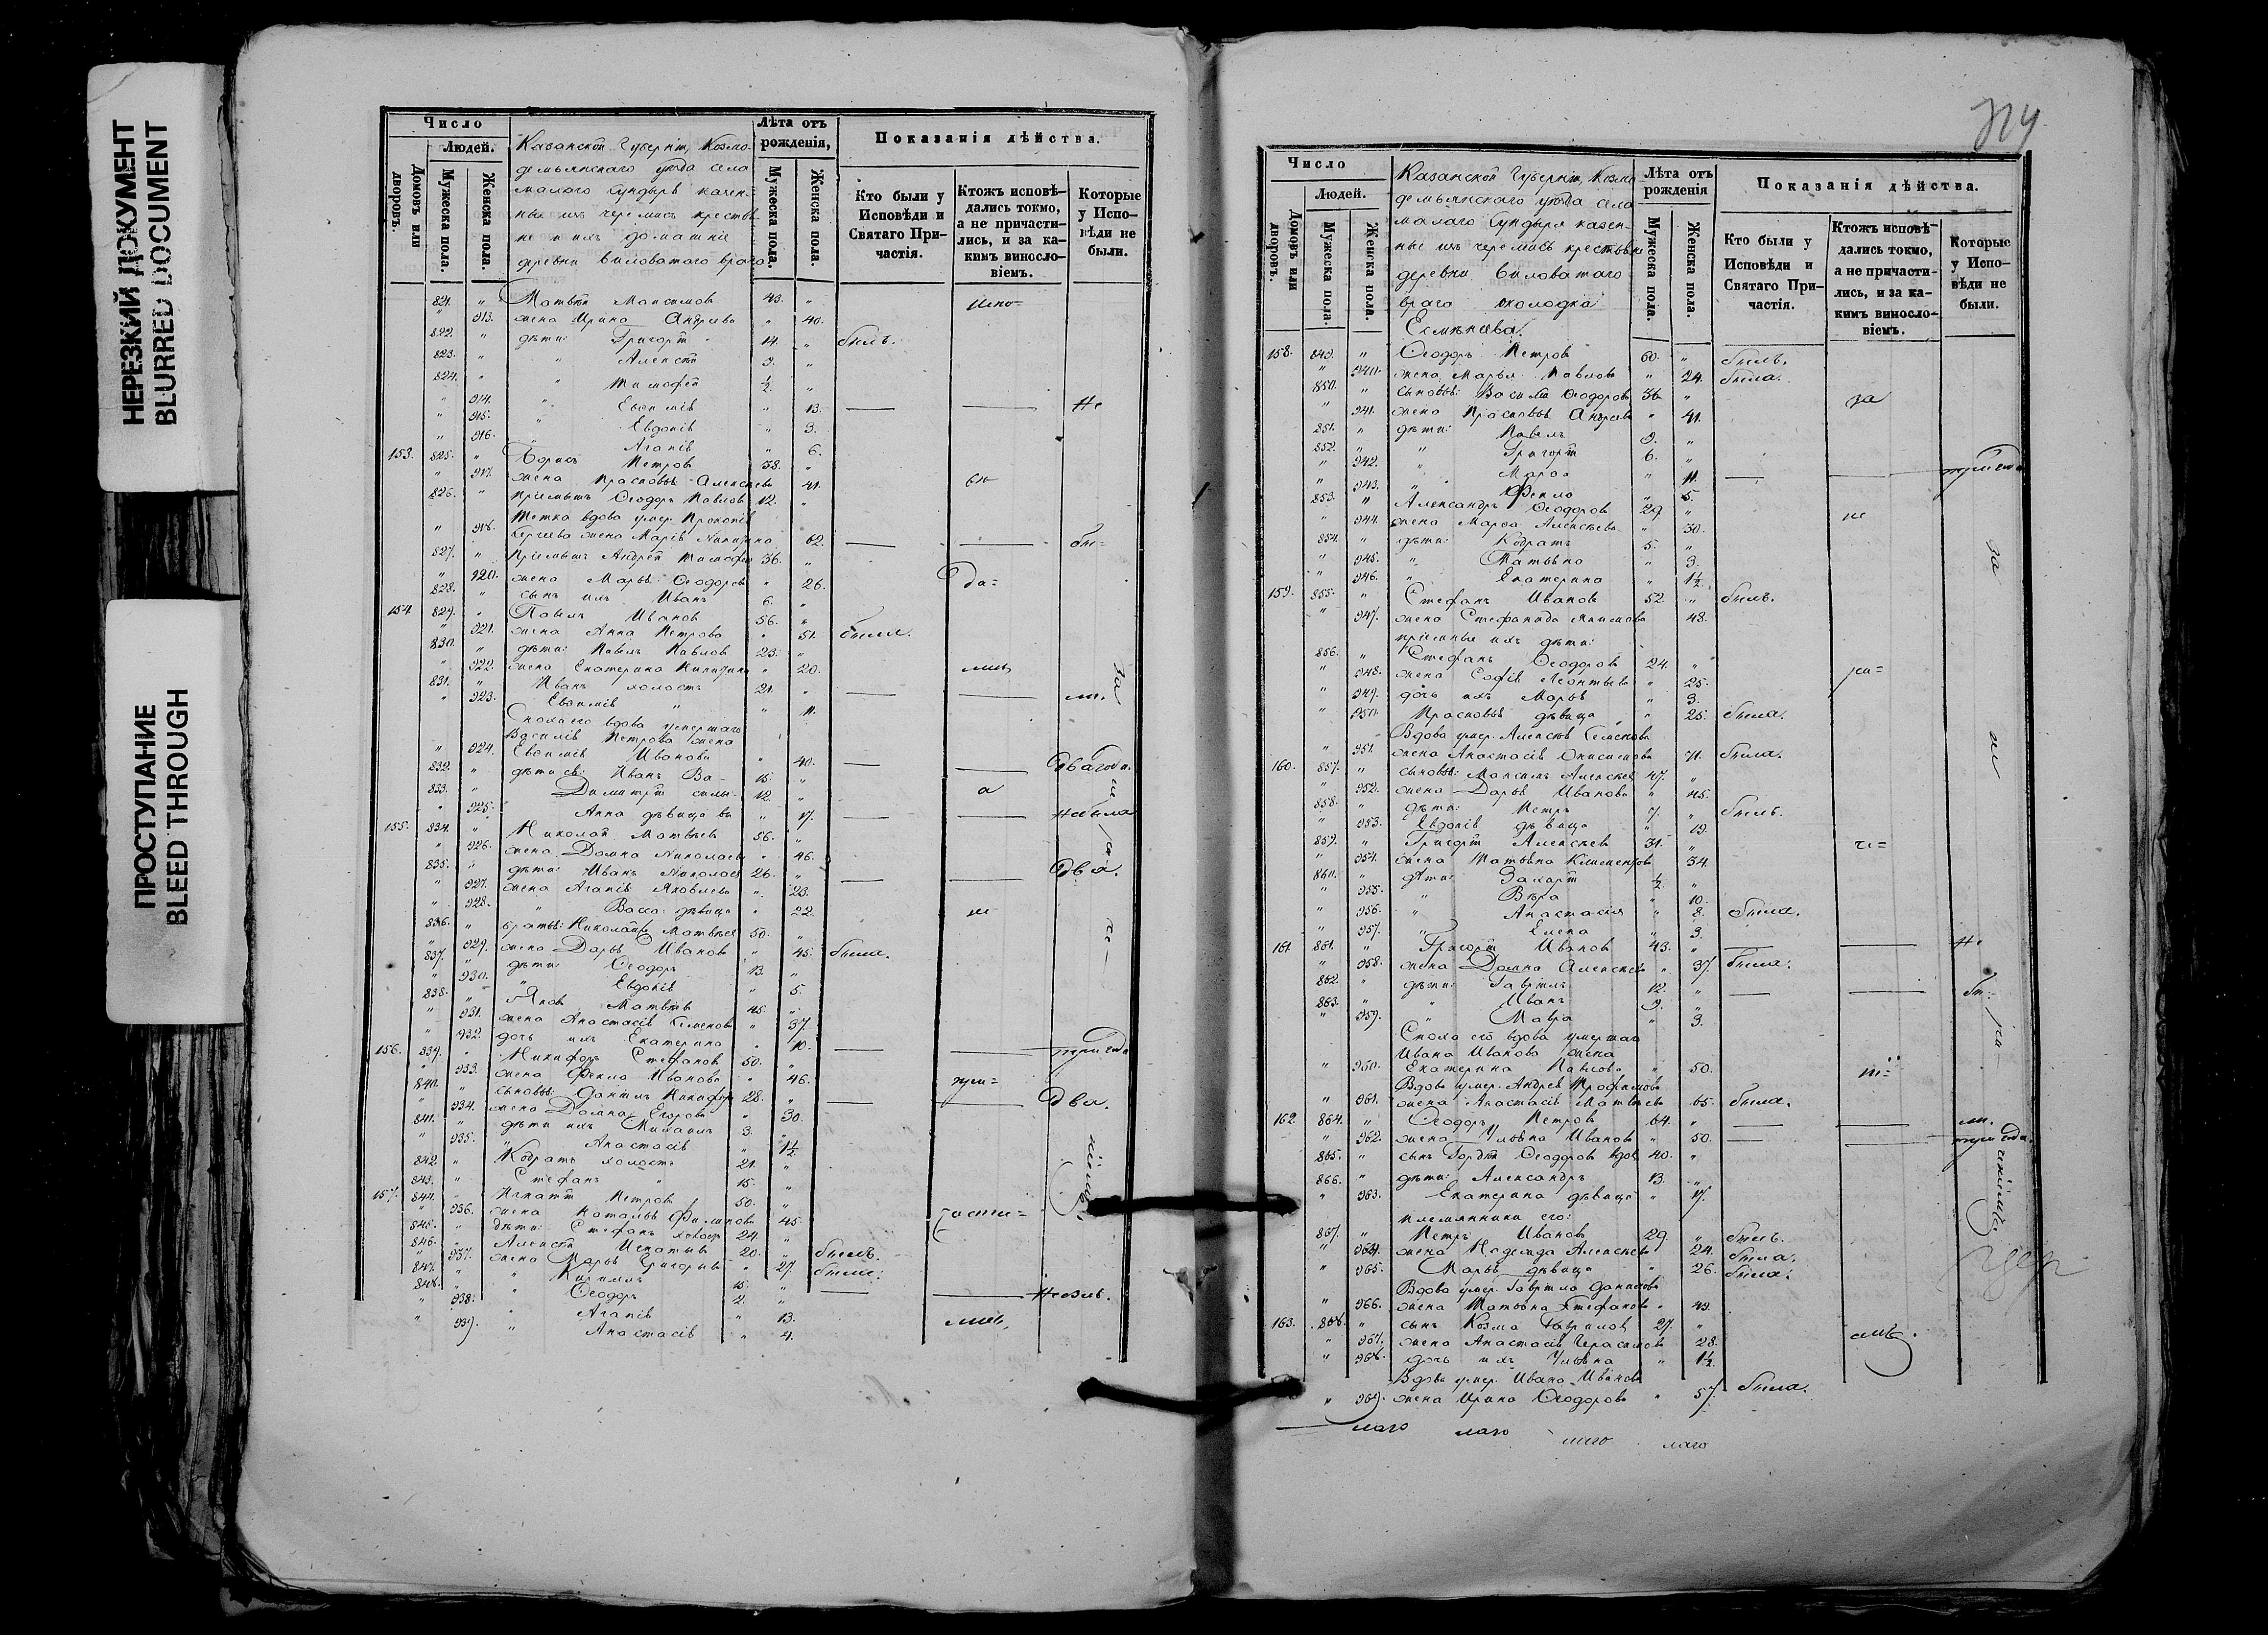 НЕРЕЗКИЙ ДОКУМЕНТ
BLURRED DOCUMENT
ПРОСТУПАНИЕ
BLEED THROUGH
Число
Людей.
Домовъ или дворовъ.
Мужеска пола.
Женска пола.
Казанской Губерніи, Козмо-
демьянскаго уѣзда села
малаго Сундыря казен-
ные изъ черемисъ крестья-
не и ихъ домашніе
деревни Виловатаго врага
Лѣта отъ рожденія,
Мужеска пола.
Женска пола.
Показанія дѣйства.
Кто были у Исповѣди и Святаго При-частія.
Ктожъ исповѣ-дались токмо, а не причасти-лись, и за ка-кимъ винослo-віемъ.
Которые у Испо-вѣди не были.
821. " Матвѣй Максимовъ 43. "
" 913. жена Ирина Андреева " 40.
822. " дѣти: Григорій 14. " былъ.
823. " " Алексѣй 9. "
824. " " Тимофей ½. "
" 914. " Евфимія " 13. Не
" 915. " Евдокія " 9.
" 916. " Агапія " 6.
153. 825. " Борисъ Петровъ 38. "
" 917. жена Прасковья Алексѣева 41.
826. " пріемышъ Ѳеодоръ Павловъ 12. "
Тетка вдова умер. Прокопія
" 918. Сергѣева жена Марія Никифо 62.
827. " Пріемышъ Андрей Тимофе 36. "
" 920. жена Марья Ѳеодоров " 26.
828. " сынъ ихъ Иванъ 6. "
154 829. " Павелъ Ивановъ 56. "
" 921. жена Анна Петрова " 51. была.
830. " дѣти: Павелъ Павлов 23. "
" 922. жена Екатерина Никифор " 20.
831. " Иванъ холостъ 21. "
" 923. Евфимія " " 11.
Сноха его вдова умершаго
Василія Петрова жена
" 924. Евфимія Иванова " 40. два года.
832. " дѣти ея: Иванъ Ва- 15. "
833. " Димитрій силь- 12. "
" 925. Анна дѣвица вы " 17. не была
155. 834. " Николай Матвѣевъ 56. "
" 926. жена Домна Николаев " 46.
835. " дѣти: Иванъ Николаев 26. " два.
" 927. жена Агапія Яковлева " 23.
" 928. " Васса дѣвица " 22.
836. " братья: Николай Матвѣев 50. "
" 929. жена Дарья Иванова " 45. была.
837. " дѣти: Ѳеодоръ 13. "
" 930. " Евдокія " 5.
838. " Яковъ Матвѣевъ 45. "
" 931. жена Анастасія Семенова " 37.
" 932. дочь ихъ Екатерина " 10.
156. 839. " Никифоръ Стефановъ 50. " три года
" 933. жена Ѳекла Иванова " 46.
840. " сыновья: Даніилъ Никифор 28. "
" 934. жена Домна Егорова " 30. два.
841. " дѣти ихъ Михаилъ 3. "
" 935. " Анастасія " 1½
842. " Кодратъ холостъ 21. "
843. " Стефанъ " 15. "
157. 844. " Игнатій Петровъ 50. "
" 936. жена Наталья Филипова 45.
845. " дѣти: Стефанъ холост 24. "
846. " Алексѣй Игнатьевъ 20. " былъ.
" 937. жена Марья Григорьев " 27. была.
847. " " Кириллъ 15. "
848. " " Ѳеодоръ 2. "
" 938. " Агапія " 13.
" 939. " Анастасія " 4.
Число
Людей.
Домовъ или дворовъ.
Мужеска пола.
Женска пола.
Казанской Губерніи, Козмо-
демьянскаго уѣзда села
малаго Сундыря казен-
ные изъ черемисъ крестьяне
деревни Виловатаго
врага околодка
Есмѣкѣева.
Лѣта отъ рожденія
Мужеска пола.
Женска пола.
Показанія дѣйства.
Кто были у Исповѣди и Святаго При-частія.
Ктожъ исповѣ-дались токмо, а не причасти-лись, и за ка-кимъ винослo-віемъ.
Которые у Испо-вѣди не были.
158. 849. " Ѳеодоръ Петровъ 60. " былъ.
" 940. жена Марья Павлова " 24. была.
850. " сыновья: Василій Ѳеодоровъ 36 "
" 941. жена Прасковья Андреев " 41. за
851. " дѣти: Павелъ 9. "
852. " " Григорій 6. "
" 942. " Марѳа " 11. три года
" 943. " Ѳекла " 5.
853. " Александръ Ѳеодоров 29 " не
" 944. жена Марѳа Алексѣева " 30.
854. " дѣти: Кодратъ 5. "
" 945. " Матвѣна " 3.
" 946. " Екатерина " 1½.
159. 855. " Стефанъ Ивановъ 52. " былъ.
" 947. жена Стефанида Акимова 48.
пріемные ихъ дѣти:
856. " Стефанъ Ѳеодоровъ 24. "
" 948. жена Софія Леонтьева " 25.
" 949. дочь ихъ Марья " 3.
" 950. Прасковья дѣвица " 25. была.
Вдова умер. Алексѣя Семенова
" 951. жена Анастасія Онисимова 71. была.
160. 857. " сыновья: Максимъ Алексѣев 47. "
" 952. жена Дарья Иванова " 45.
858. " дѣти: Петръ 7. " былъ.
" 953. Евдокія дѣвица " 19.
859. " Григорій Алексѣевъ 31. "
" 954. жена Матвѣна Климентьев 34.
860. " дѣти: Захарій ½. "
" 955. " Вѣра " 10.
" 956. " Анастасія " 8. была.
" 957. " Елена " 3.
161. 861. " Григорій Ивановъ 43. " Не
" 958. жена Домна Алексѣев " 37. была.
862. " дѣти: Гавріилъ 12. "
863. " " Иванъ 9. "
" 959. " Мавра " 3.
Сноха его вдова умершаго
Ивана Иванова жена
" 960. Екатерина Павлова " 50.
Вдова умер. Андрея Трофимова
" 961. жена Анастасія Матвѣева 65. была.
162. 864. " Ѳеодоръ Петровъ 64. "
" 962. жена Ульяна Иванов " 50. три года.
865. " сынъ Гордѣй Ѳеодоров вдов 40. "
866. " дѣти: Александръ 13. "
" 963. Екатерина дѣвица " 17.
племянники его:
867. " Петръ Ивановъ 29. " былъ.
" 964. жена Надежда Алексѣев 24. была.
" 965. Марья дѣвица " 26. была.
Вдова умер. Гавріила Данилова
" 966. жена Матвѣна Стефанова " 49.
163. 868. " сынъ Козма Гавриловъ 27. "
" 967. жена Анастасія Герасимова 28.
" 968. дочь ихъ Ульяна " 1½.
Вдова умер. Ивана Иванова
" 969. жена Ирина Ѳеодорова " 57. была.